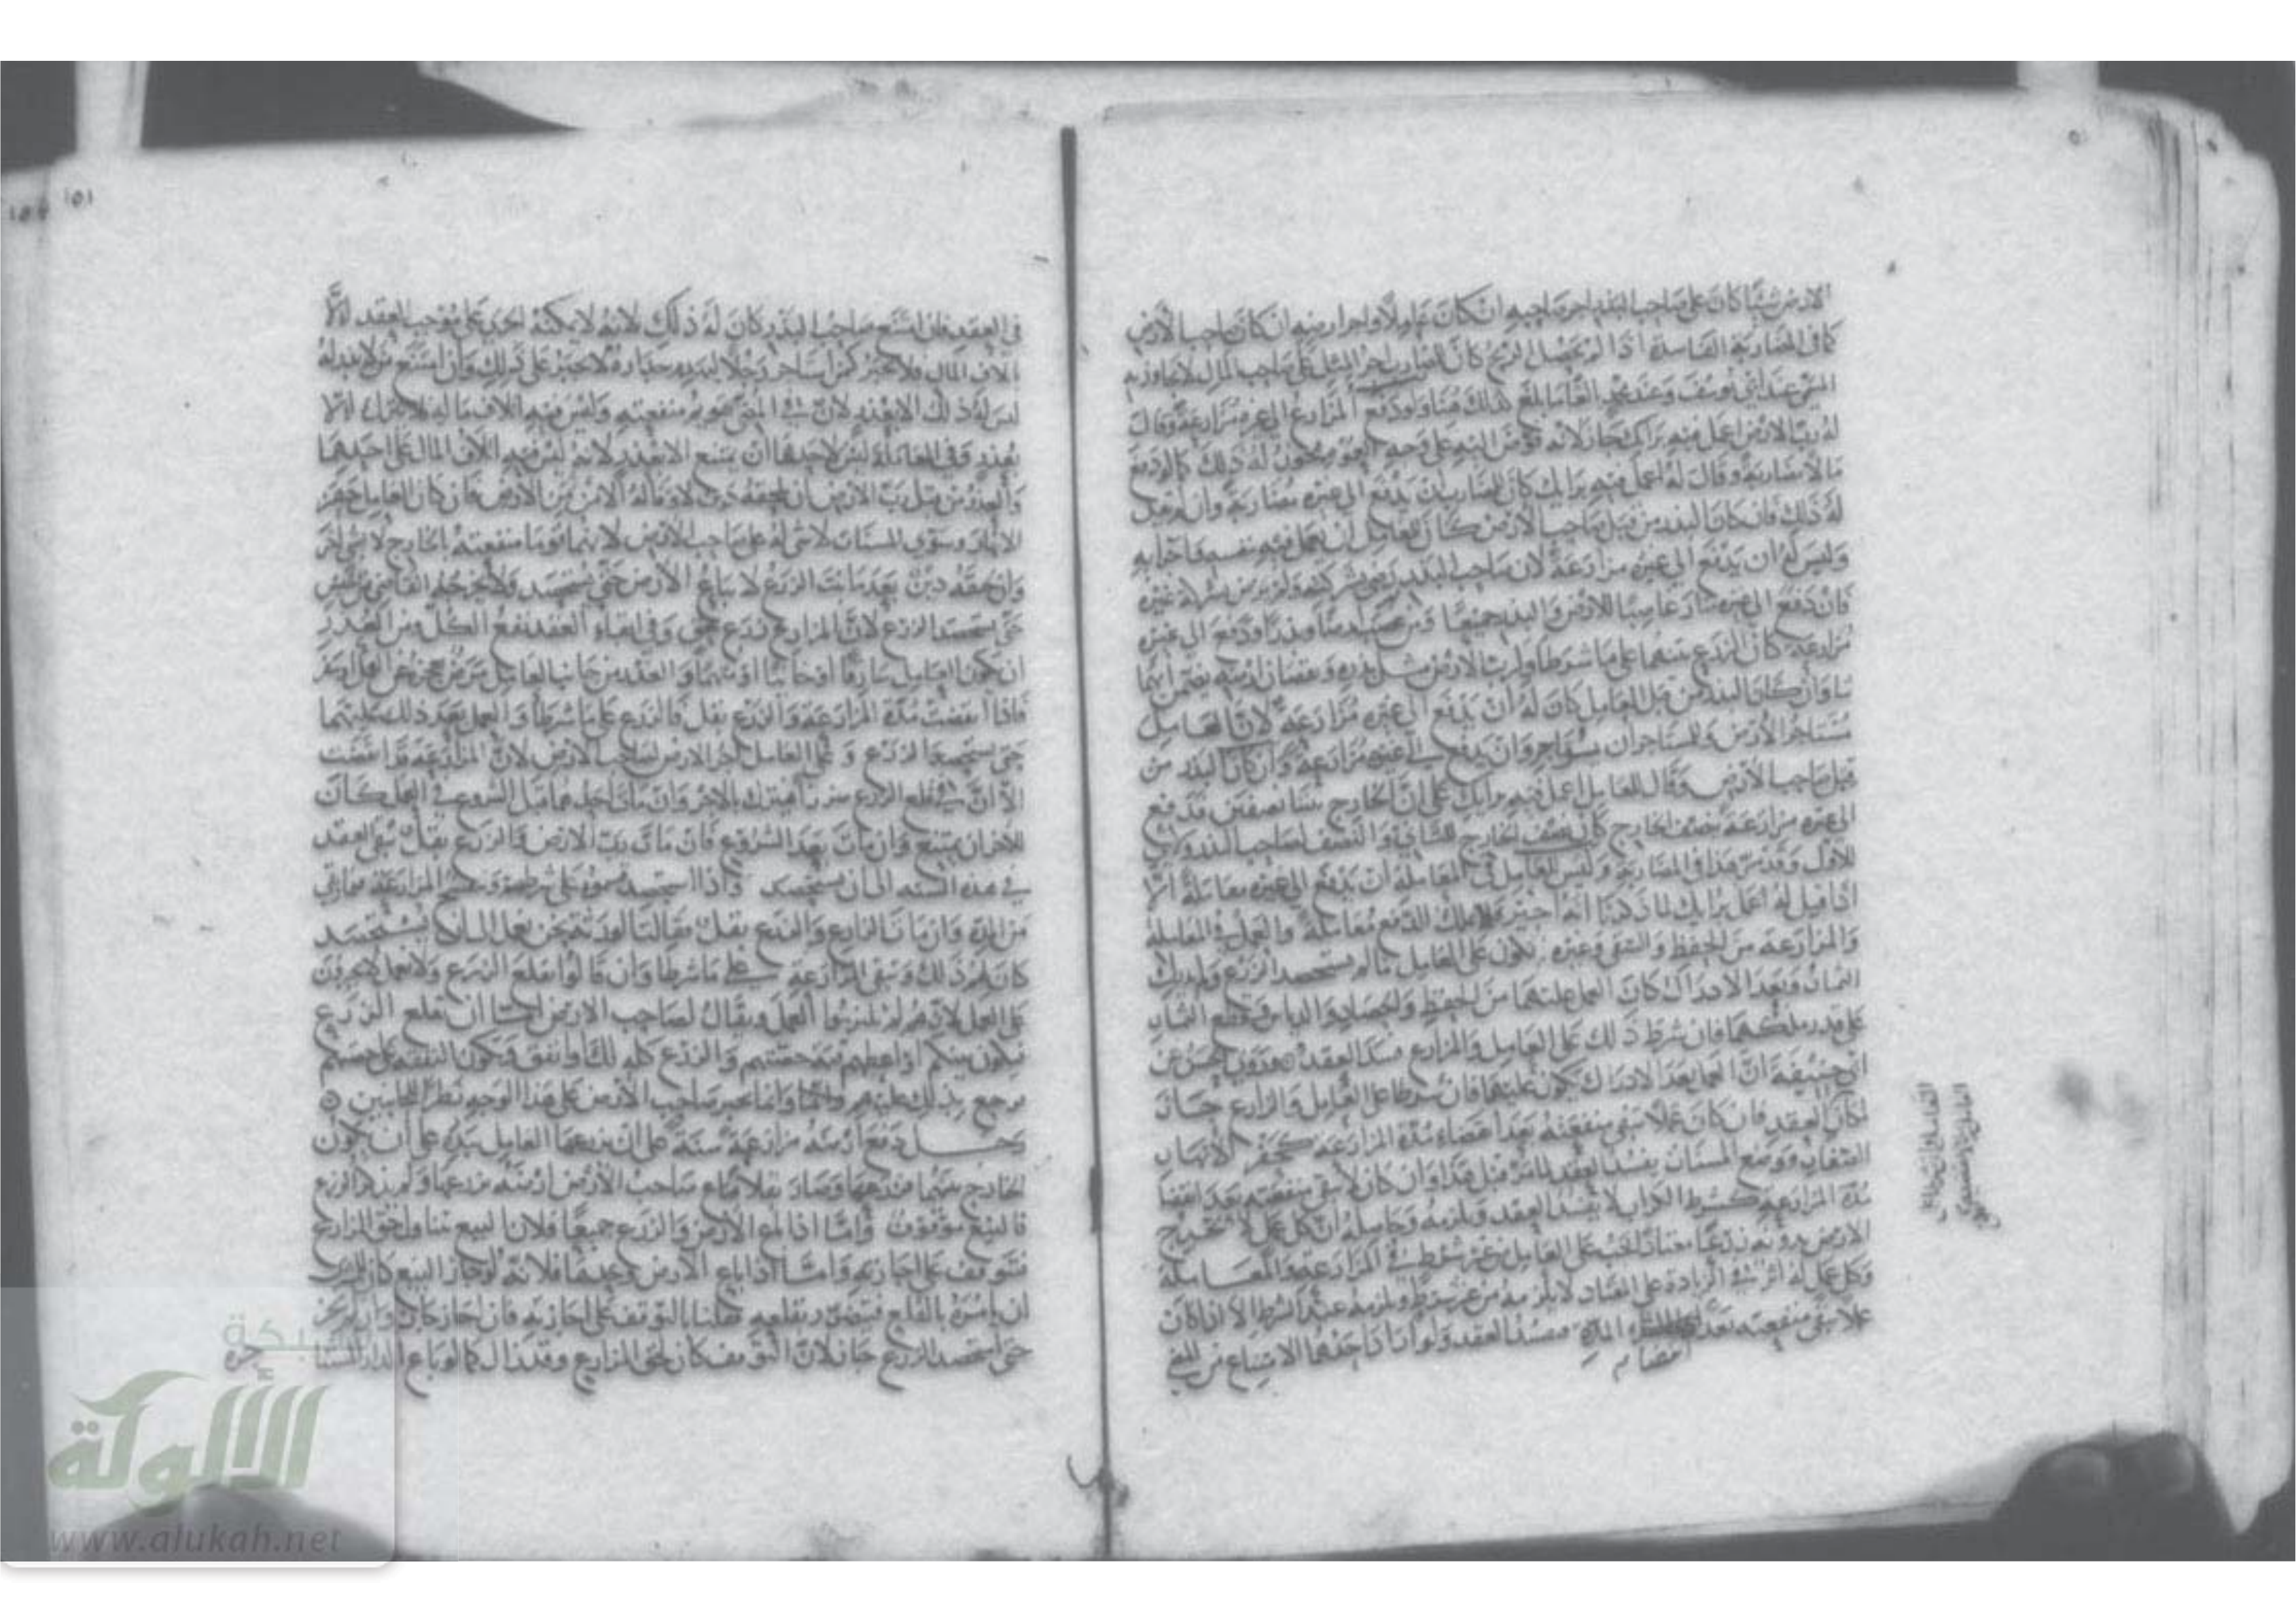 الارض شيئا كان على صاحب البذر اجر صاحبه ان كان عاملا واجر ارضه ان كان صاحب الارض
كما في المضاربة الفاسدة اذا لم يحصل الربح كان للمضارب اجر المثل على صاحب المال لا يجاوز به
المسمى عند ابي يوسف وعند محمد بالغا ما بلغ كذلك هنا ولو دفع المزارع الى غيره مزارعة وقال
له رب الارض اعمل فيه برايك جاز لانه فوض اليه على وجه العموم فيكون له ذلك كما لو دفع
مالا مضاربة وقال له اعمل فيه برايك كان للمضارب ان يدفع الى غيره مضاربة وان لم يقل
له ذلك فان كان البذر من قبل صاحب الارض كان للعامل ان يعمل فيه بنفسه واجرائه
وليس له ان يدفع الى غيره مزارعة لان صاحب البذر رضي بشركته ولم يرض بشركة غيره
فان دفع الى غيره صار غاصبا للارض والبذر جميعا ومن غصب ارضا وبذرا ودفع الى غيره
مزارعة كان الزرع بينهما على ما شرطا ولرب الارض مثل بذره ونقصان ارضه يضمن ايهما
شا وان كان البذر من قبل العامل كان له ان يدفع الى غيره مزارعة لان العامل
مستاجر الارض وللمستاجر ان يؤاجر وان يدفع الى غيره مزارعة وان كان البذر من
قبل صاحب الارض وقال للعامل اعمل فيه برايك على ان الخارج بيننا نصفين فدفع
الى غيره مزارعة بنصف الخارج كان نصف الخارج للثاني والنصف لصاحب البذر ولا شي
للاول وقد مر هذا في المضاربة وليس للعامل في المعاملة ان يدفع الى غيره معاملة الا
اذا قيل له اعمل برايك لما ذكرنا انه اجير فلا يملك الدفع معاملة والعمل في المعاملة
والمزارعة من الحفظ والسقي وغيره يكون على العامل ما لم يستحصد الزرع ولم يدرك
الثمار وبعد الادراك كان العمل عليهما من الحفظ والحصاد والدياس وقطع الثمار
على قدر ملكهما فان شرط ذلك على العامل والمزارع فسد العقد وروى الحسن عن
ابي حنيفة ان العمل بعد الادراك يكون عليهما فان شرطا على العامل والزارع جاز
لمكان العقد فان كان عملا تبقى منفعته بعد انقضاء مدة المزارعة كحفر الانهار
الصغار ووضع المسناة يفسد العقد لما مر من قبل هذا وان كان لا تبقى منفعته بعد انقضا
مدة المزارعة كشرط الكراب لا يفسد العقد ويلزمه وحاصله ان كل عمل لا تخرج
الارض بدونه زرعا معتادا يجب على العامل من غير شرط في المزارعة والمعاملة
وكل عمل له اثر في الزيادة على المعتاد لا يلزمه من غير شرط ويلزمه عند الشرط الا اذا كان
عملا تبقى منفعته بعد انقضا المدة فيفسد العقد ولو اراد احدهما الامتناع من المضي
في العقد فان امتنع صاحب البذر كان له ذلك لانه لا يمكنه الجري على موجب العقد الا
باتلاف المال فلا يجبر كمن استاجر رجلا ليهدم جداره لا يجبر على ذلك وان امتنع من لا بذر له
ليس له ذلك الا بعذر لان في المضي تحصيل منفعته وليس فيه اتلاف ماله فلا يترك الا
بعذر وفي المعاملة ليس لاحدهما ان يمتنع الا بعذر لانه ليس فيه اتلاف المال على احدهما
والعذر من قبل رب الارض ان يلحقه دين لا وفاء له الا من ثمن الارض فان كان العامل حفر
الانهار وسوى المسناة لا شي له على صاحب الارض لانهما قوما منفعته بالخارج لا بشي اخر
وان لحقه دين بعد ما نبت الزرع لا تباع الارض حتى يستحصد ولا يخرجه القاضي من الحبس
حتى يستحصد الزرع لان المزارع زرع بحق وفي ابقاء العقد نفع الكل ومن العذر
ان يكون العامل سارقا او خائنا او متهما والعذر من جانب العامل مرض يعجزه عن العمل او سفر
فاذا انقضت مدة المزارعة والزرع بقل فالزرع على ما شرطا والعمل بعد ذلك عليهما
حتى يستحصد الزرع وعلى العامل اجر الارض لصاحب الارض لان المزارعة قد انقضت
الا ان في قلع الزرع ضررا فيترك بالاجر وان مات احدهما قبل الشروع في العمل كان
للاخر ان يمتنع وان مات بعد الشروع فان مات رب الارض والزرع بقل تبقى العقد
في هذه السنة الى ان يستحصد واذا استحصد قسموه على شرطه وتنفسخ المزارعة فيما بقي
من المدة وان مات الزارع والزرع بقل فقالت الورثة نحن نعمل الى ان يستحصد
كان لهم ذلك وتبقى المزارعة على ما شرطا وان قالوا نقلع الزرع ولا نعمل لا يجبرون
على العمل لانهم لم يلتزموا العمل ويقال لصاحب الارض اما ان تقلع الزرع
فيكون بينكم او اعطهم قيمة حصتهم والزرع كله لك او انفق وتكون النفقة على حصتهم
ترجع بذلك عليهم وانما يخير صاحب الارض على هذا الوجه نظرا للجانبين
رجل دفع ارضه مزارعة سنة على ان يزرعها العامل ببذره على ان يكون
الخارج بينهما فزرعها وصار بقلا فباع صاحب الارض ارضه مزرعها ولم يذكر الزرع
فالبيع موقوف واما اذا باع الارض والزرع جميعا فلان البيع تناول حق المزارع
فتوقف على اجازته واما اذا باع الارض وحدها فلانه لو جاز البيع كان للمشتري
ان يامره بالقلع فيتضرر بقلعه فقلنا بالتوقف على اجازته فان اجاز جاز وان لم يجز
حتى استحصد الزرع جاز لان التوقف كان لحق المزارع وقد زال كما لو باع الدار المستا
جرة
١٥١
شبكة
الألوكة
www.alukah.net